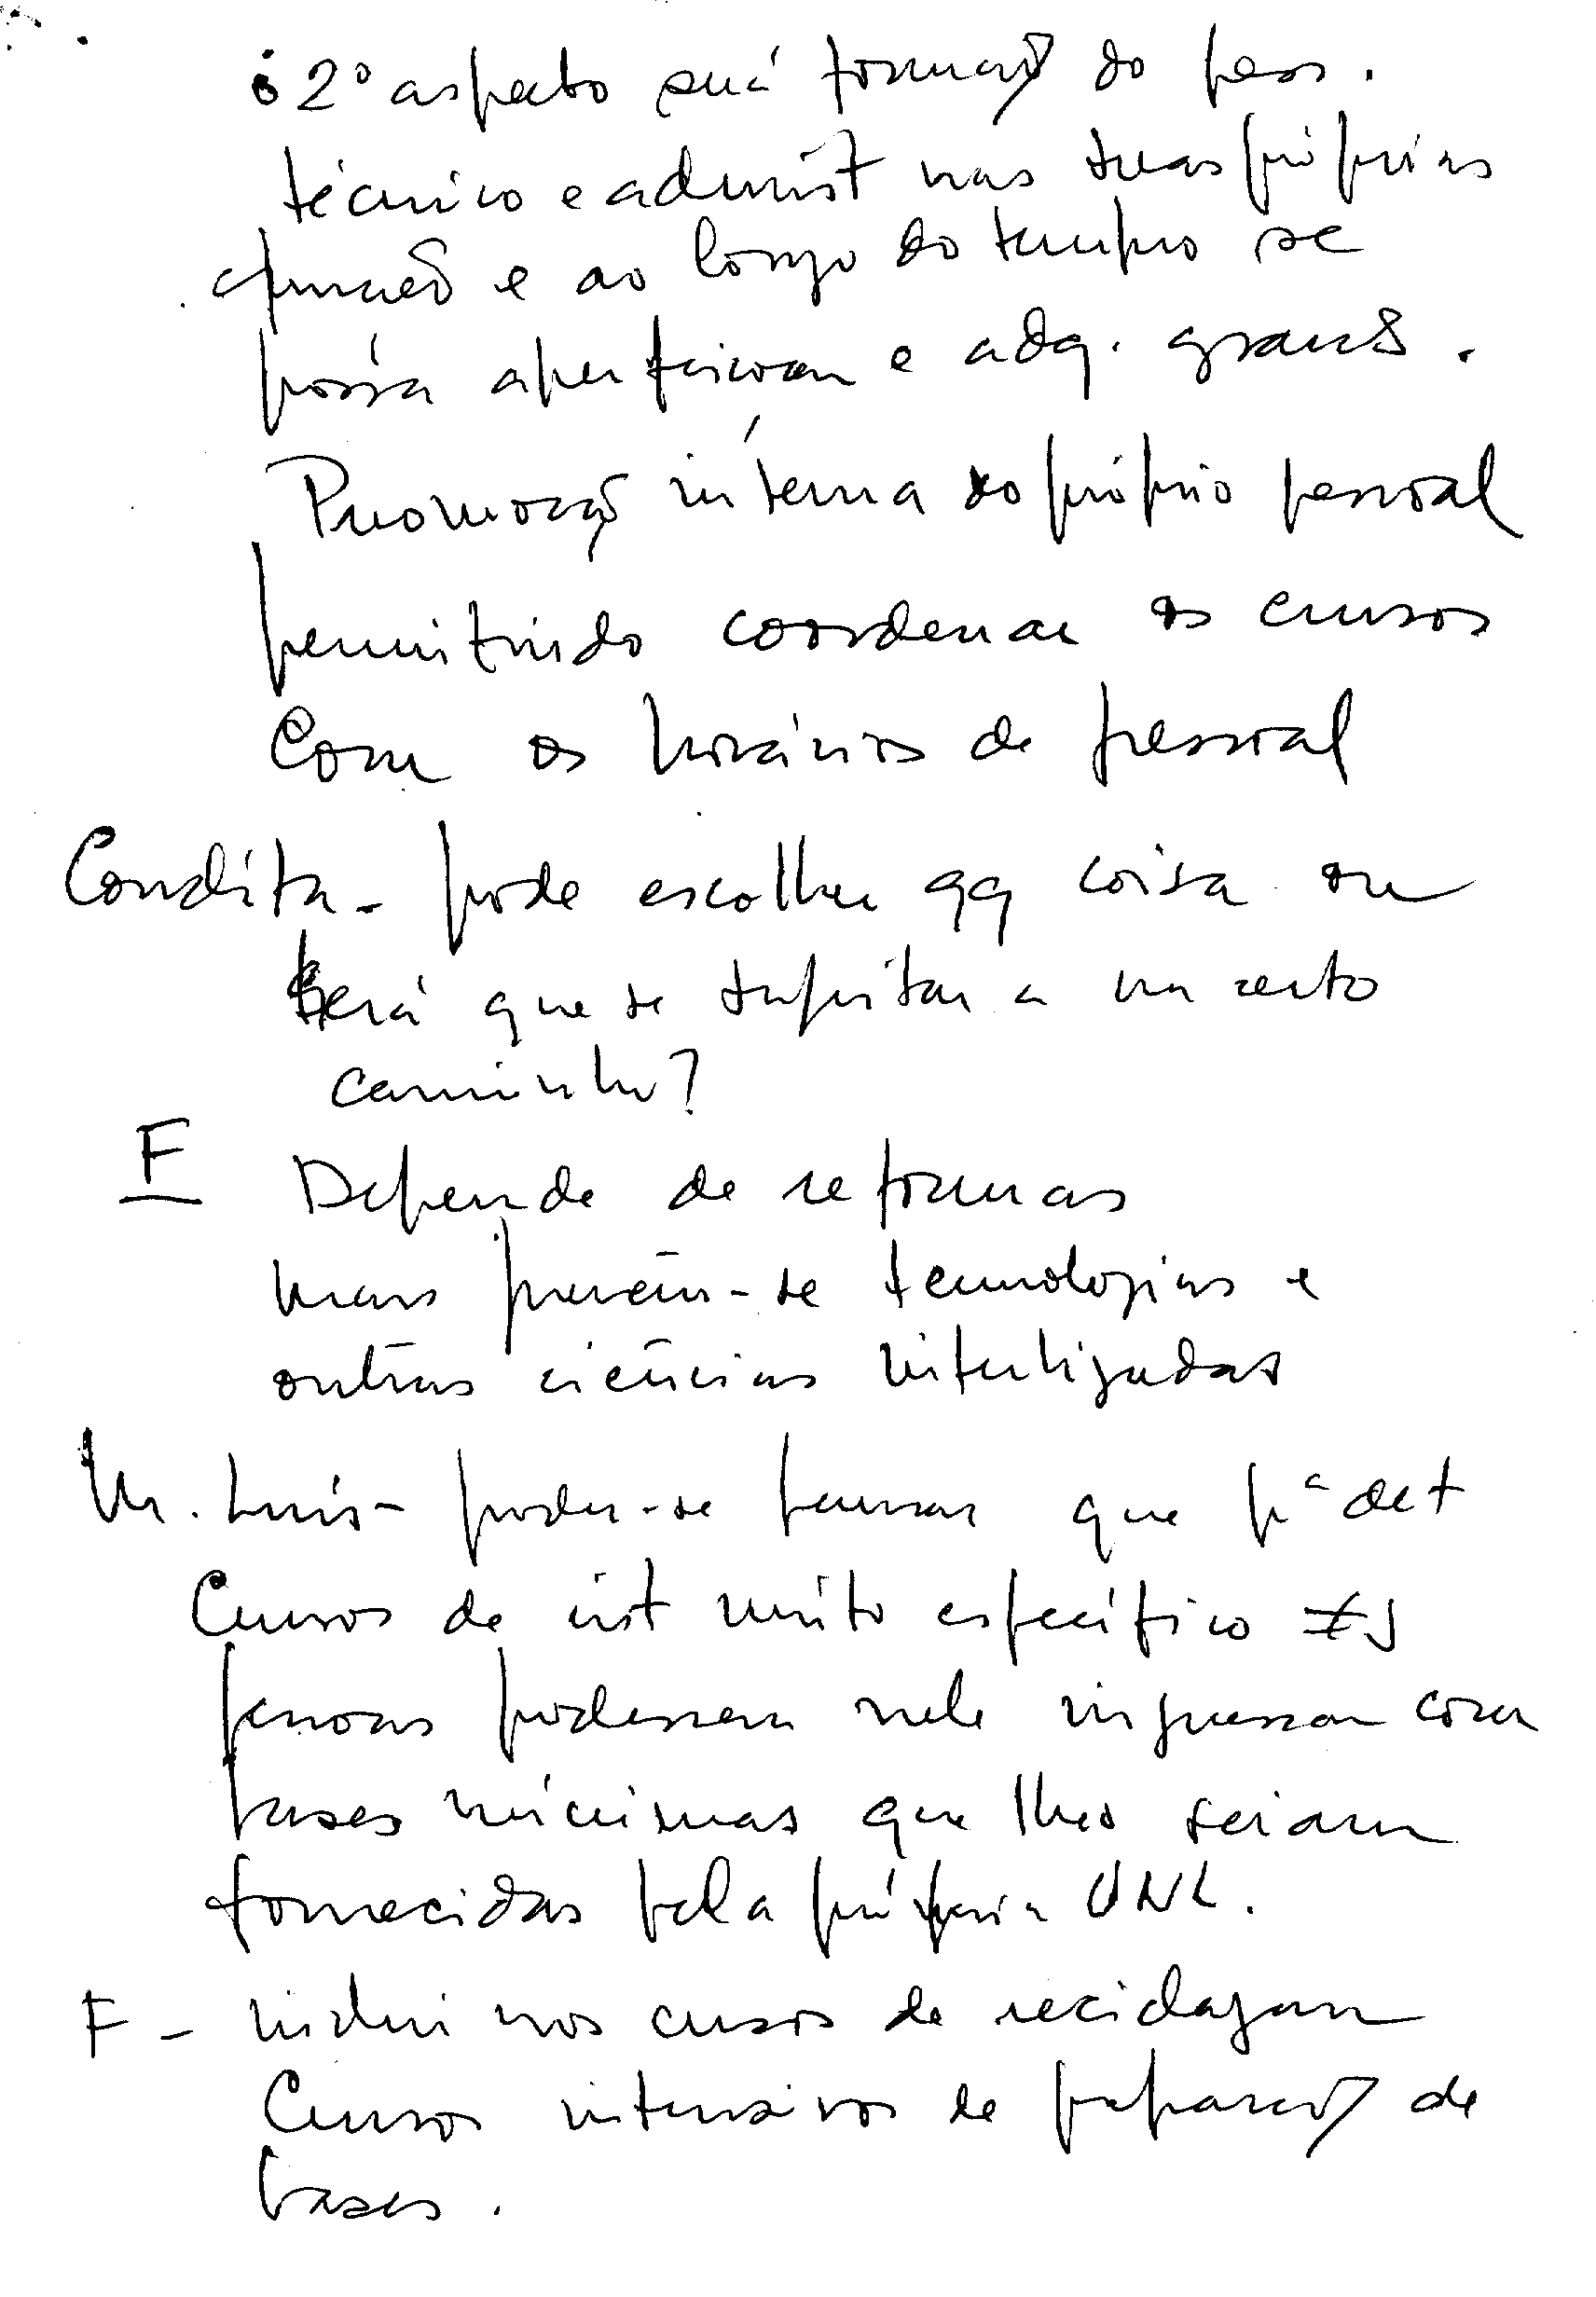 o 2º aspecto será formação do pess.
técnico e administ nas suas próprias
e ao longo do tempo se
possa aperfeiçoar e adq. graus.
Promoção interna do próprio pessoal
permitindo coordenar os cursos
Com os horários de pessoal
Condita - pode escolher qq coisa ou
terá que se sujeitar a um certo
caminho?
F Depende de reformas
mas prevêm-se tecnologias e
outras ciências interligadas
M. Luís - poder-se pensar que pª det
Cursos de int muito específico
pessoas podessem nele ingressar com
bases mínimas que lhes seriam
fornecidas pela própria UNL.
F - inclui nos cursos de reciclagem
Cursos intensivos de preparação de
bases.